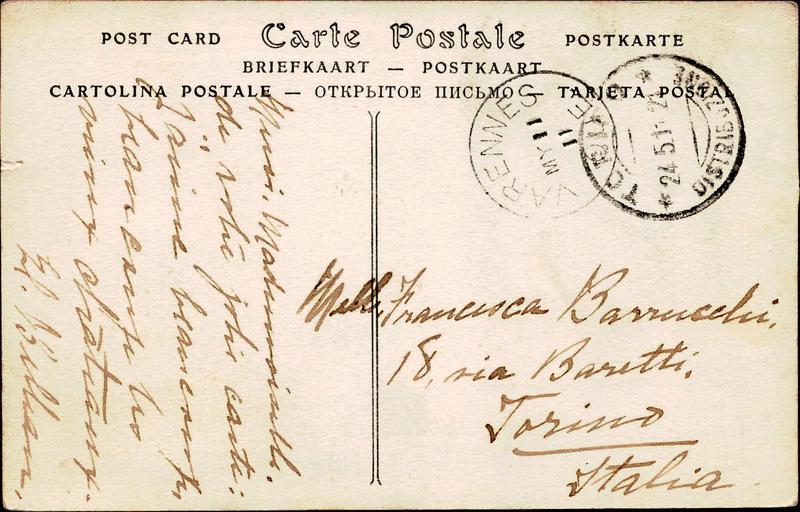 POST CARD Carte Postale POSTKARTE
BRIEFKAART — POSTKAART
CARTOLINA POSTALE — ОТКРЫТОЕ ПИСЬМО — TARJETA POSTAL
VARENNES
MY 11
11
TORINO
* 24.5.11
DISTRIBUZIONE
Merci, Mademoiselle,
de votre jolie carte:
j'aime beaucoup,
beaucoup les
vieux châteaux.
Melle Francesca Barrucchi.
18, via Baretti,
Torino
Italia